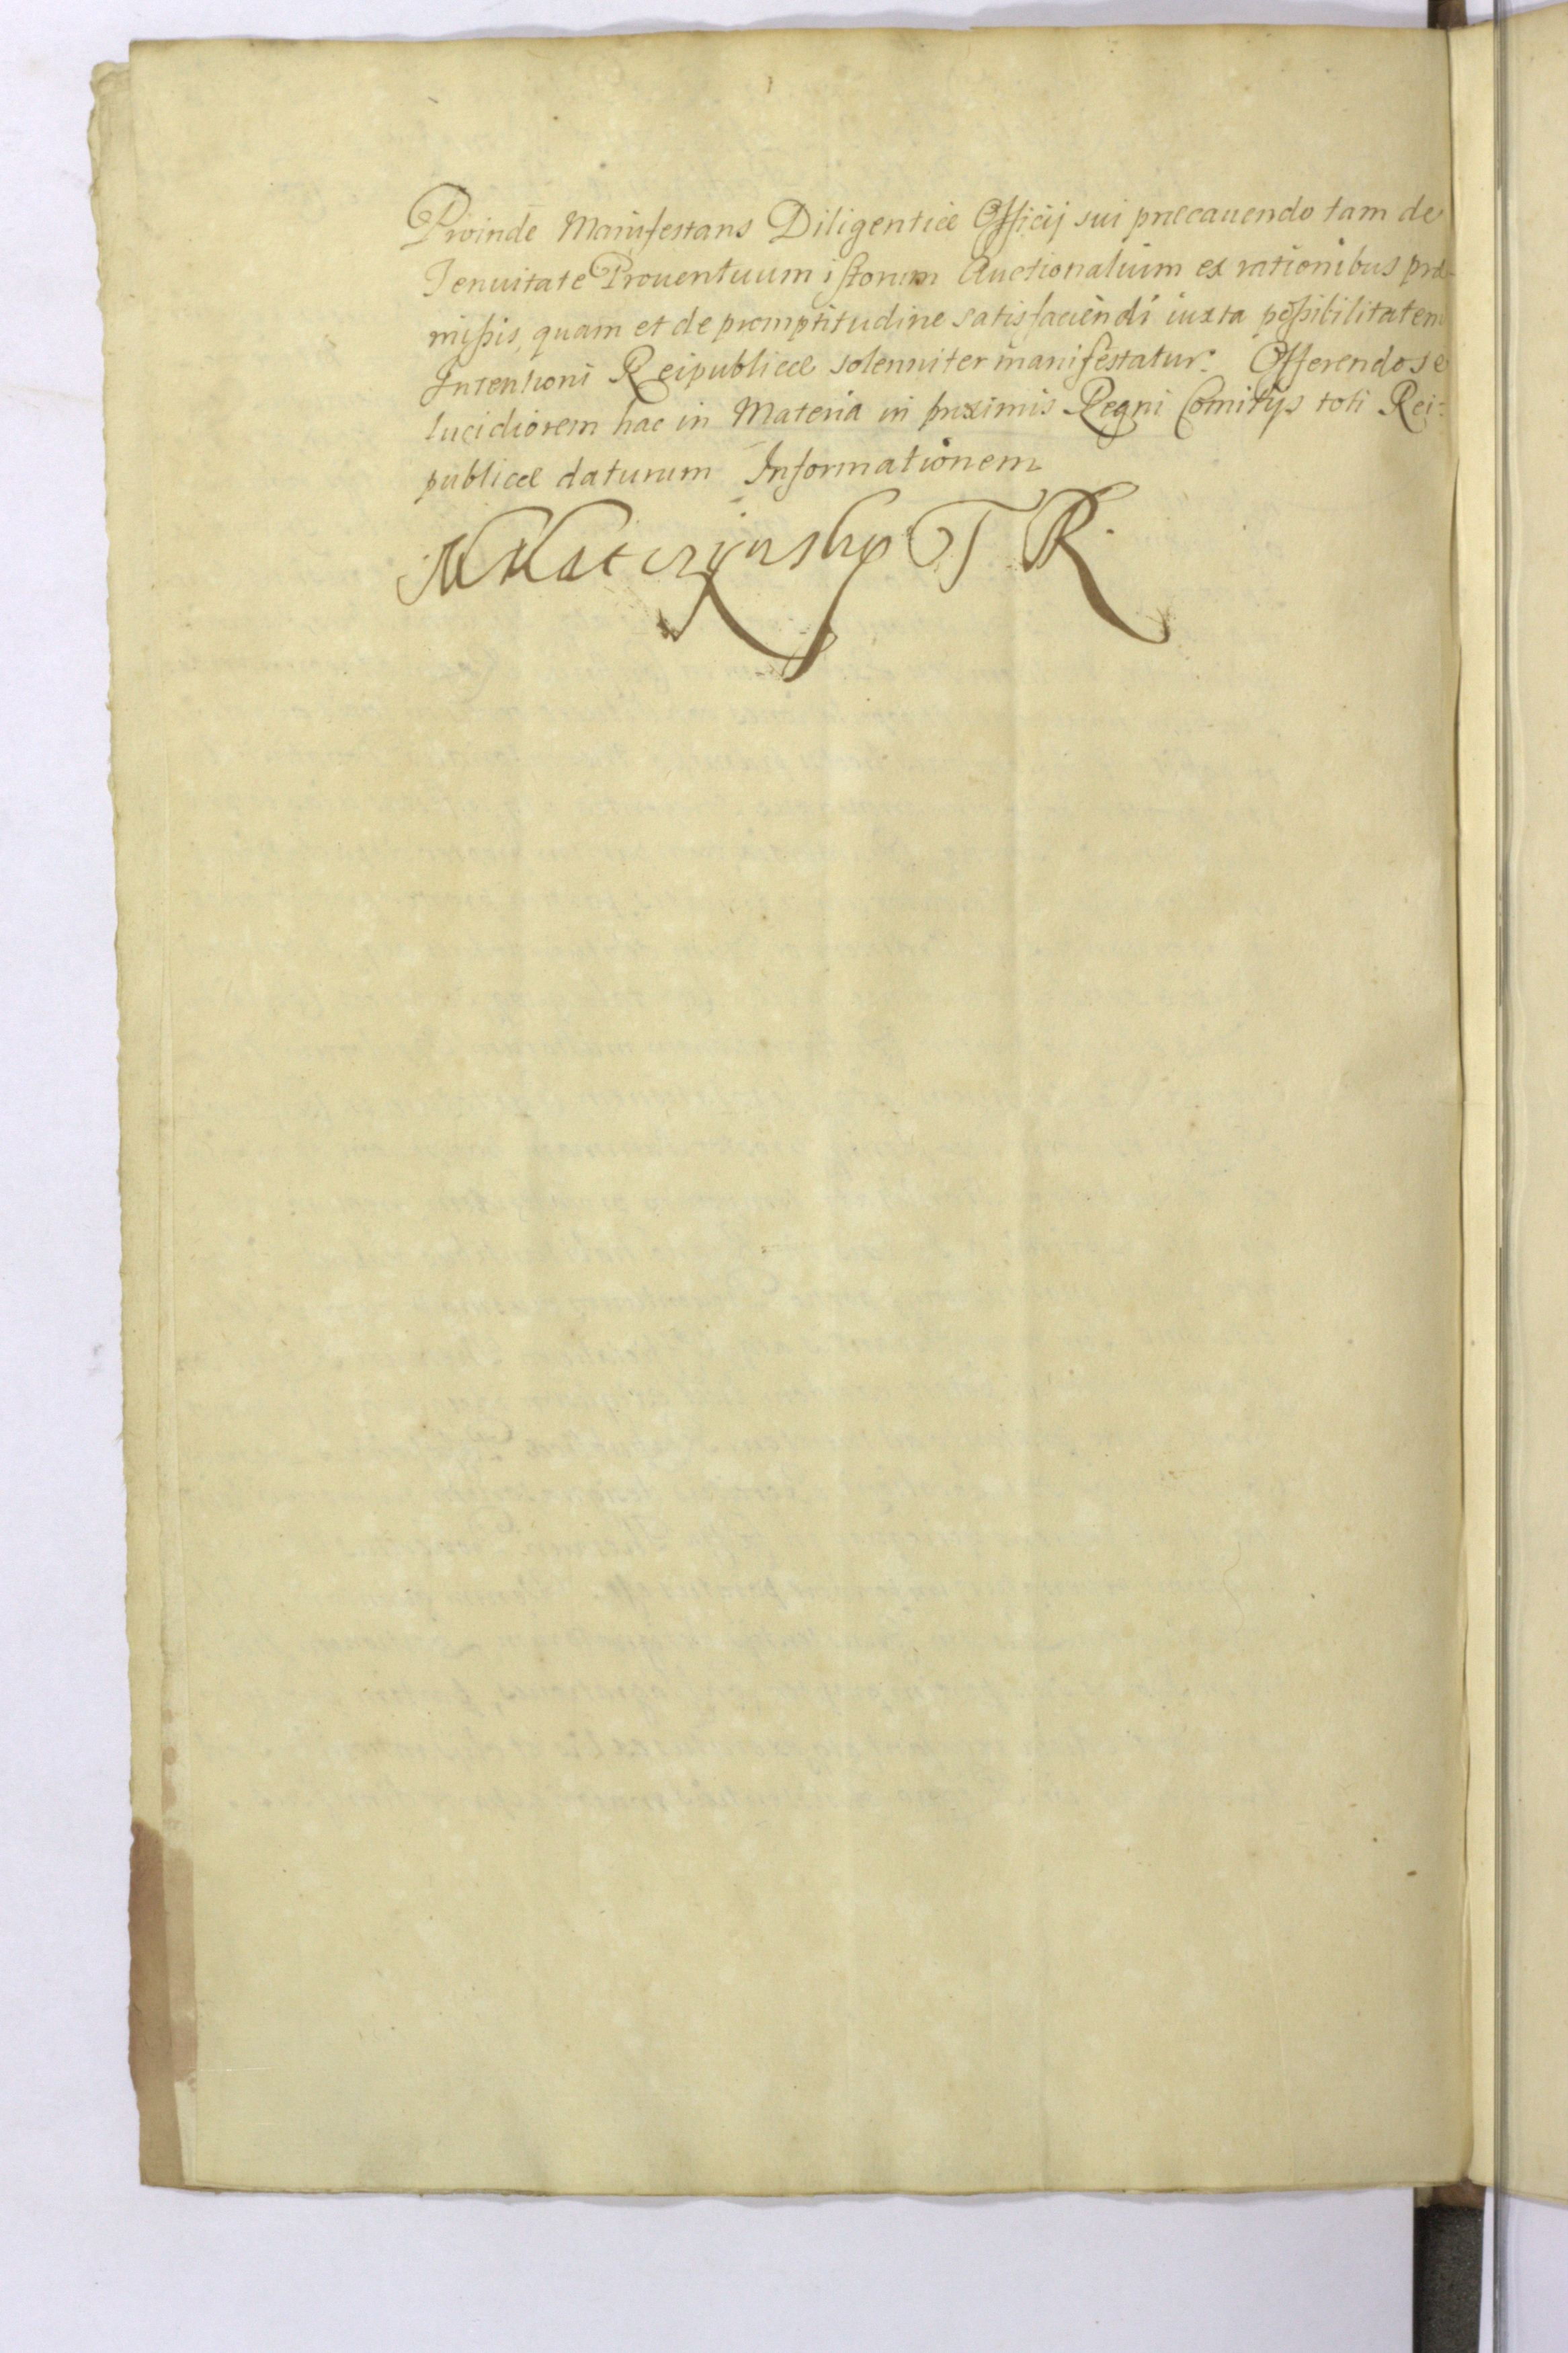 Proinde Manifestans Diligentiæ Officij sui præcauendo tam de
Tenuitate Prouentuum istorum Auctionalium ex rationibus præ-
missis, quam et de promptitudine satisfaciendi iuxta possibilitatem
Intentioni Reipublicæ solenniter manifestatur. Offerendo se
lucidiorem hac in Materia in proximis Regni Comitijs toti Rei-
publicæ daturum Informationem
T R